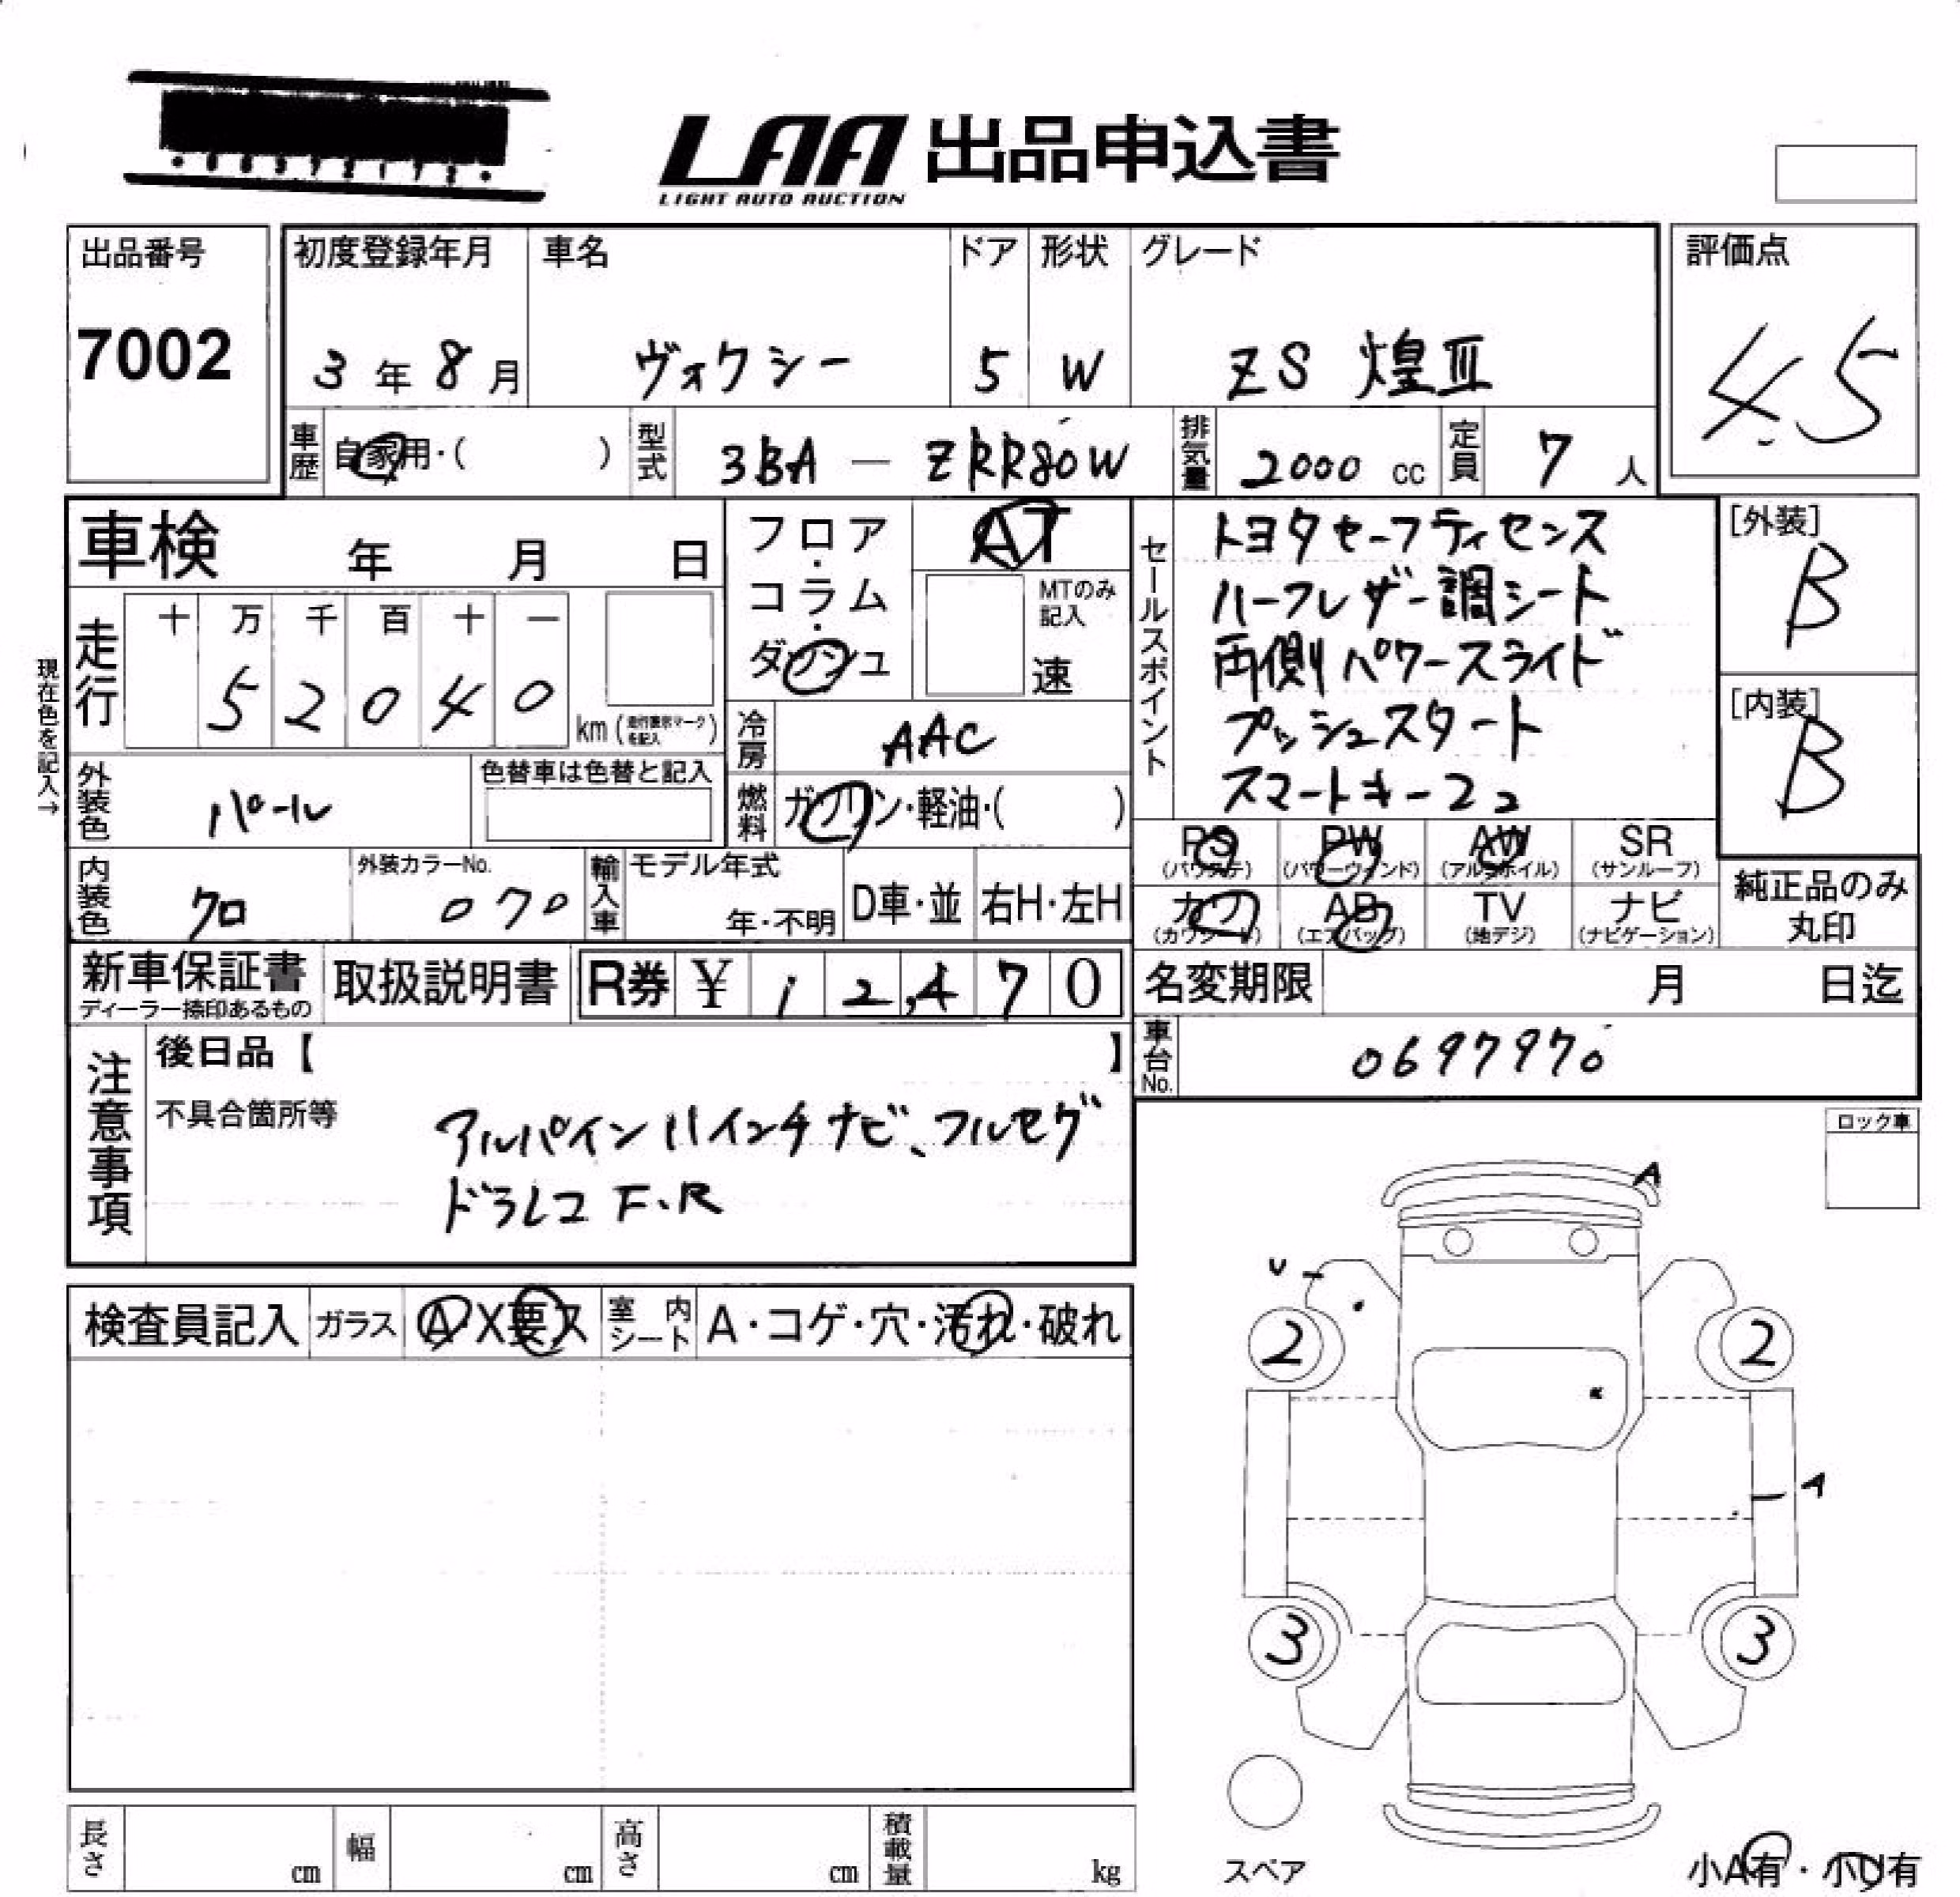 LAA 出品申込書
LIGHT AUTO AUCTION
出品番号
7002
初度登録年月
3年8月
車名
ヴォクシー
ドア
5
形状
W
グレード
ZS 煌Ⅲ
評価点
4.5
車歴
自家用・( )
型式
3BA - ZRR80W
排気量
2000 cc
定員
7人
車検 年 月 日
走行
十 万 千 百 十 一
5 2 0 4 0
km
現在色を記入→
フロア・コラム・ダッシュ
AT
MTのみ記入
速
冷房
AAC
燃料
ガソリン・軽油・( )
セールスポイント
トヨタセーフティセンス
ハーフレザー調シート
両側パワースライド
プッシュスタート
スマートキー2コ
[外装]
B
[内装]
B
外装色
パール
色替車は色替と記入
内装色
クロ
外装カラーNo.
070
輸入車
モデル年式
年・不明
D車・並
右H・左H
PS
(パワステ)
PW
(パワーウィンド)
AW
(アルミホイル)
SR
(サンルーフ)
カワ
(カワシート)
AB
(エアバッグ)
TV
(地デジ)
ナビ
(ナビゲーション)
純正品のみ
丸印
新車保証書
ディーラー捺印あるもの
取扱説明書
R券 ¥ 12,470
名変期限 月 日迄
車台No.
0697970
注意事項
後日品【 】
不具合箇所等
アルパイン11インチナビ、フルセグ
ドラレコ F・R
ロック車
検査員記入
ガラス
A X 要ス
室内シート
A・コゲ・穴・汚れ・破れ
A
U
2
2
A
3
3
スペア
長さ cm
幅 cm
高さ cm
積載量 kg
小A有・小U有